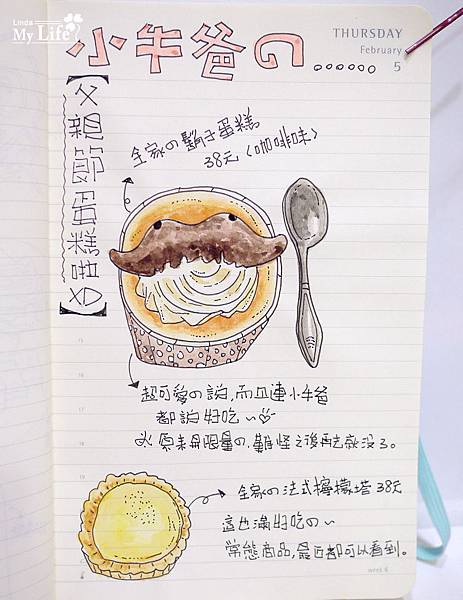 Linda
My Life
小牛爸の......
THURSDAY
February
5
【父親節蛋糕啦XD】
全家の鬍子蛋糕
38元〈咖啡味〉
超可愛の說,而且連小牛爸
都說好吃~
原來是限量の,難怪之後再去就沒了。
全家の法式檸檬塔 38元
這也滿好吃の~
常態商品,最近都可以看到。
15
16
17
18
19
week 6